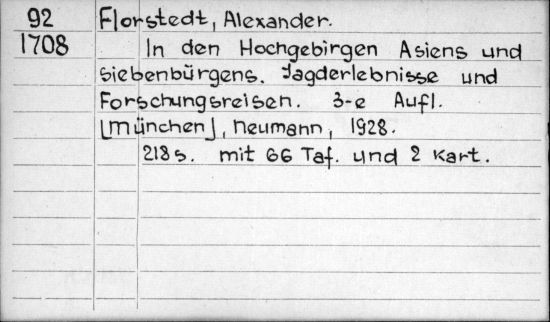 92 Florstedt, Alexander.
1708 In den Hochgebirgen Asiens und
siebenbürgens. Jagderlebnisse und
Forschungsreisen. 3-e Aufl.
[München], Neumann, 1928.
218 s. mit 66 Taf. und 2 Kart.